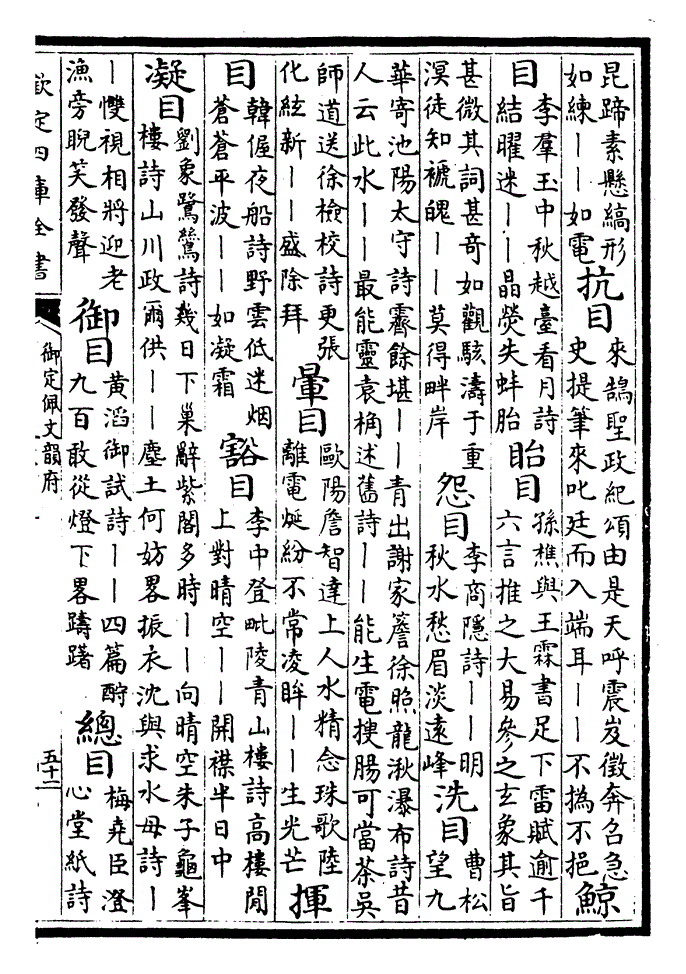 昆蹄素懸縞形
如練——如電
抗目
來鵠聖政紀頌由是天呼震岌徵奔召急
史提筆來叱廷而入端耳——不撝不挹
鯨
目
李羣玉中秋越臺看月詩
結曜迷——晶熒失蚌胎
眙目
孫樵與王霖書足下雷賦逾千
六言推之大易參之玄象其旨
甚微其詞甚奇如觀駭濤于重
溟徒知褫魄——莫得畔岸
怨目
李商隱詩——明
秋水愁眉淡遠峰
洗目
曹松
望九
華寄池陽太守詩霽餘堪——青出謝家簷徐照龍湫瀑布詩昔
人云此水——最能靈袁桷述舊詩——能生電搜腸可當茶吳
師道送徐檢校詩更張
化絃新——盛除拜
暈目
歐陽詹智達上人水精念珠歌陸
離電烻紛不常凌眸——生光芒
揮
目
韓偓夜船詩野雲低迷烟
蒼蒼平波——如凝霜
豁目
李中登毗陵青山樓詩高樓閒
上對晴空——開襟半日中
凝目
劉象鷺鷥詩幾日下巢辭紫閣多時——向晴空朱子龜峯
樓詩山川政爾供——塵土何妨畧振衣沈與求水母詩—
—雙視相將迎老
漁旁睨笑發聲
御目
黃滔御試詩——四篇酹
九百敢從燈下畧躊躇
總目
梅堯臣澄
心堂紙詩
欽定四庫全書
御定佩文韻府
五十二